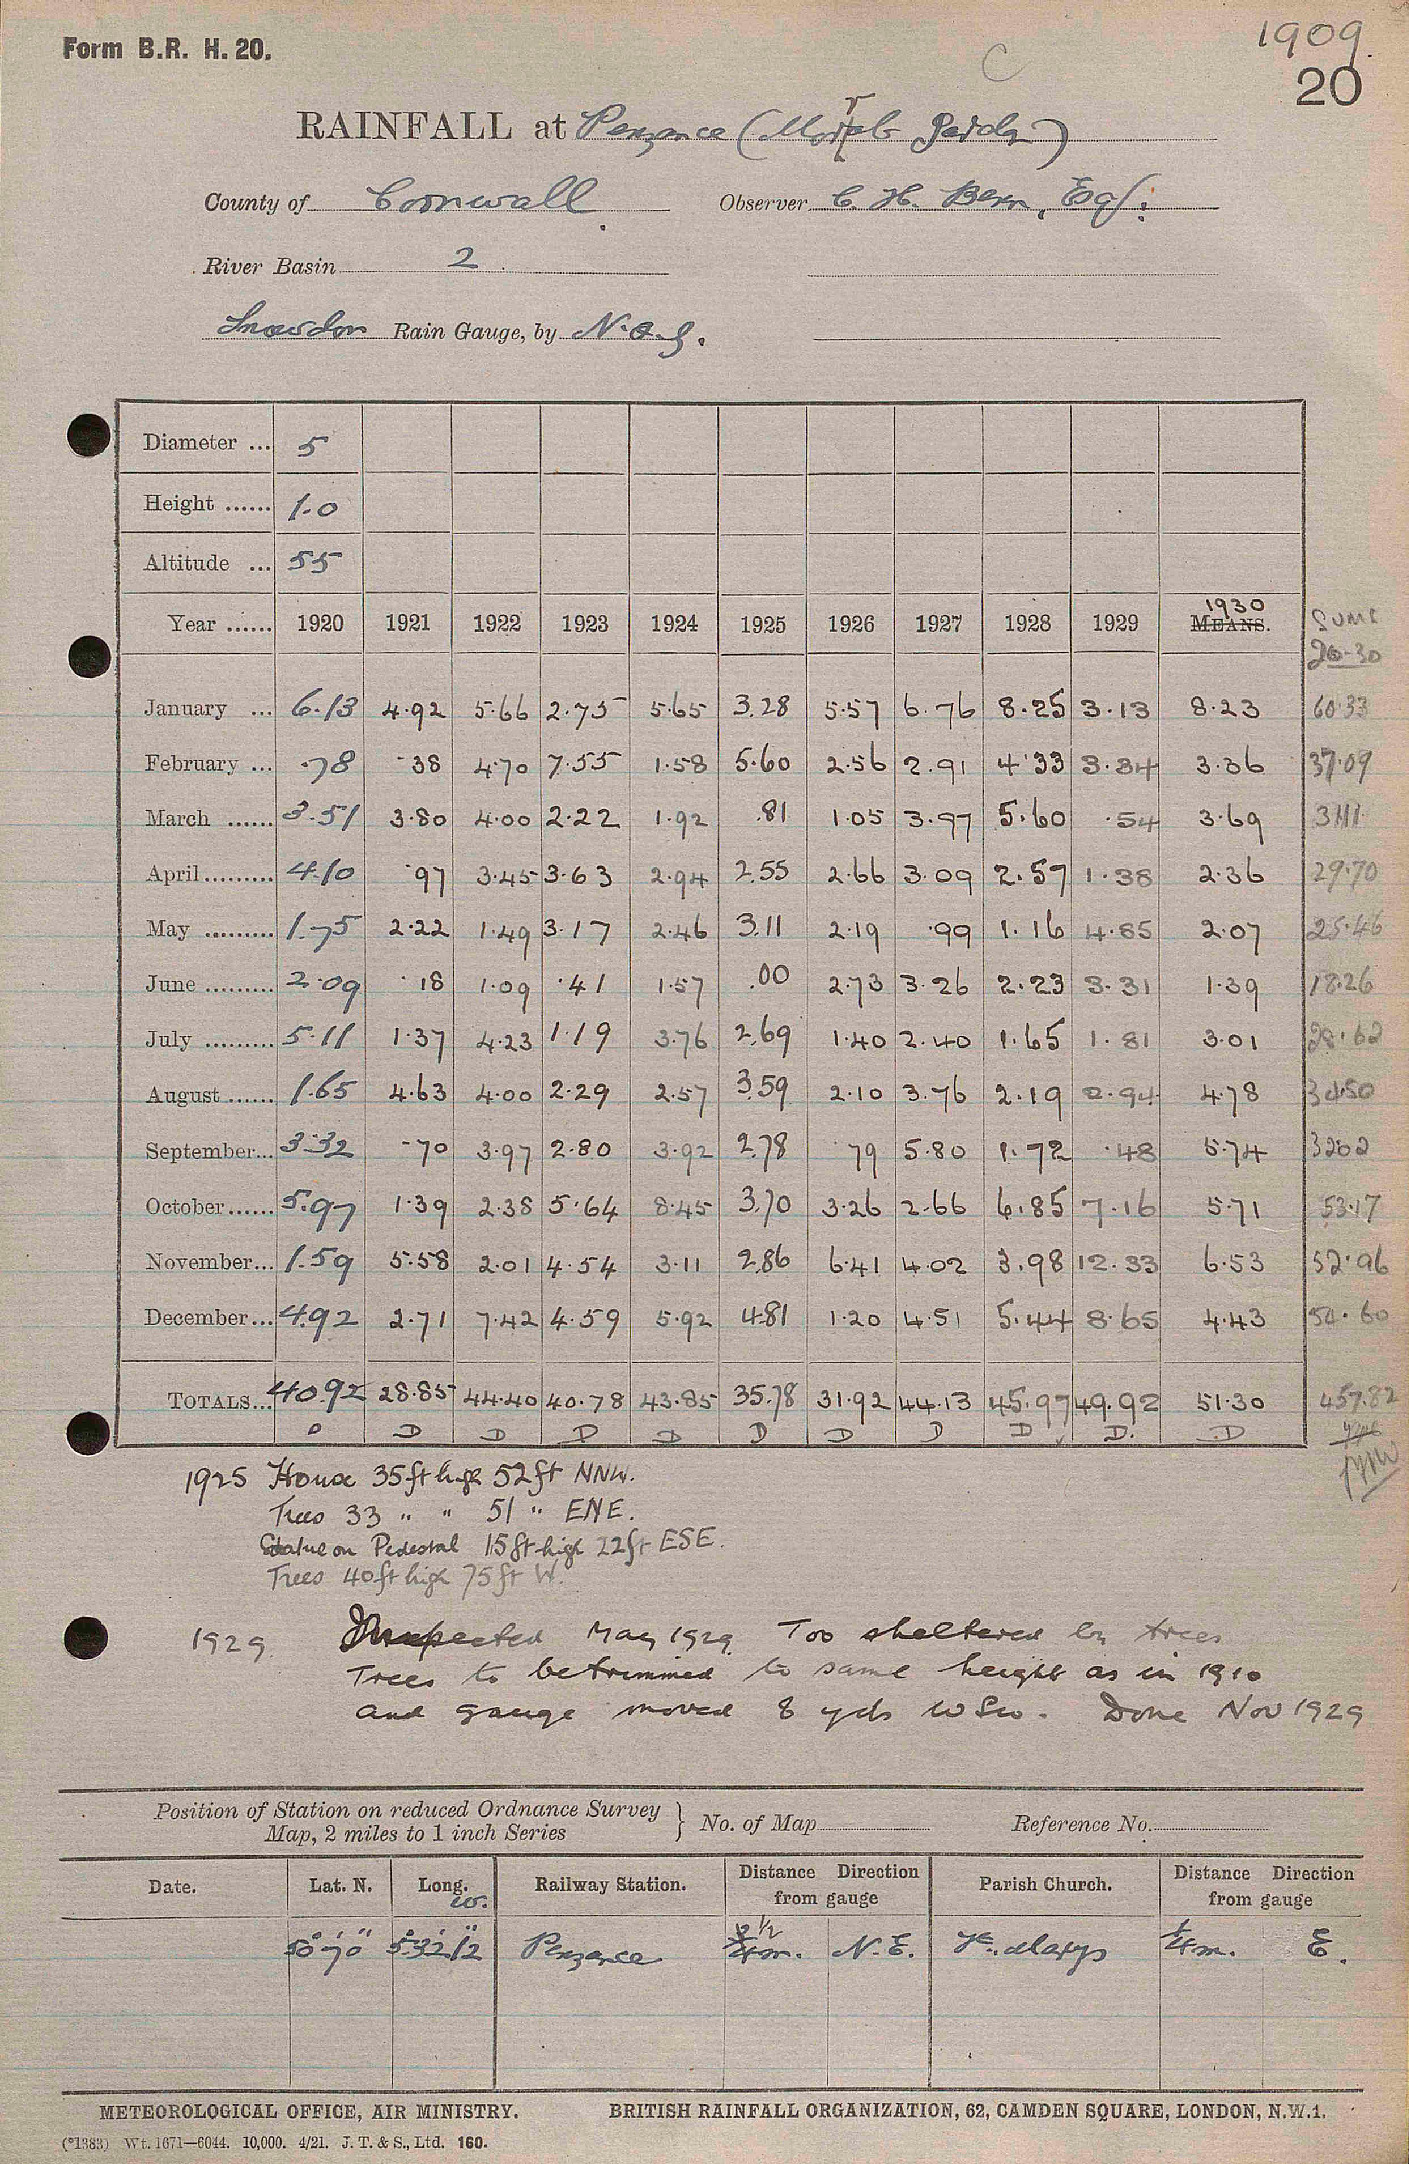 1909.
Form B.R. H. 20.
C
20
RAINFALL at Penzance (Morrab Gardn)
County of Cornwall. Observer C. H. Benn, Esq.
River Basin 2
Snowdon Rain Gauge, by N. & Z.
Diameter ... 5
Height ...... 1.0
Altitude ... 55
Year ...... 1920 1921 1922 1923 1924 1925 1926 1927 1928 1929 1930 MEANS. SUMS 20-30
January ... 6.13 4.92 5.66 2.75 5.65 3.28 5.57 6.76 8.25 3.13 8.23 60.33
February ... .78 .38 4.70 7.55 1.58 5.60 2.56 2.91 4.33 3.34 3.36 37.09
March ...... 3.51 3.80 4.00 2.22 1.92 .81 1.05 3.97 5.60 .54 3.69 31.11
April ......... 4.10 .97 3.45 3.63 2.94 2.55 2.66 3.09 2.57 1.38 2.36 29.70
May ......... 1.75 2.22 1.49 3.17 2.46 3.11 2.19 .99 1.16 4.85 2.07 25.46
June ......... 2.09 .18 1.09 .41 1.57 .00 2.73 3.26 2.23 3.31 1.39 18.26
July ......... 5.11 1.37 4.23 1.19 3.76 2.69 1.40 2.40 1.65 1.81 3.01 28.62
August ...... 1.65 4.63 4.00 2.29 2.57 3.59 2.10 3.76 2.19 2.94 4.78 34.50
September... 3.32 .70 3.97 2.80 3.92 2.78 .79 5.80 1.72 .48 5.74 32.02
October ...... 5.97 1.39 2.38 5.64 8.45 3.70 3.26 2.66 6.85 7.16 5.71 53.17
November... 1.59 5.58 2.01 4.54 3.11 2.86 6.41 4.02 3.98 12.33 6.53 52.96
December... 4.92 2.71 7.42 4.59 5.92 4.81 1.20 4.51 5.44 8.65 4.43 54.60
TOTALS... 40.92 28.85 44.40 40.78 43.85 35.78 31.92 44.13 45.97 49.92 51.30 457.82
D D D D D D D D D D. D
1925 House 35 ft high 52 ft NNW.
Trees 33 " " 51 " ENE.
Statue on Pedestal 15 ft high 22 ft ESE.
Trees 40 ft high 75 ft W.
1929. Inspected May 1929. Too sheltered by trees
Trees to be trimmed to same height as in 1910
and gauge moved 8 yds WSW. Done Nov 1929
Position of Station on reduced Ordnance Survey Map, 2 miles to 1 inch Series } No. of Map Reference No.
Date. Lat. N. Long. W. Railway Station. Distance Direction from gauge Parish Church. Distance Direction from gauge
50° 7' 0" 5° 32' 12" Penzance 1/2 3/4 m. N.E. St. Marys 1/4 m. E.
METEOROLOGICAL OFFICE, AIR MINISTRY. BRITISH RAINFALL ORGANIZATION, 62, CAMDEN SQUARE, LONDON, N.W.1.
(*1383) Wt. 1671—6044. 10,000. 4/21. J. T. & S., Ltd. 160.